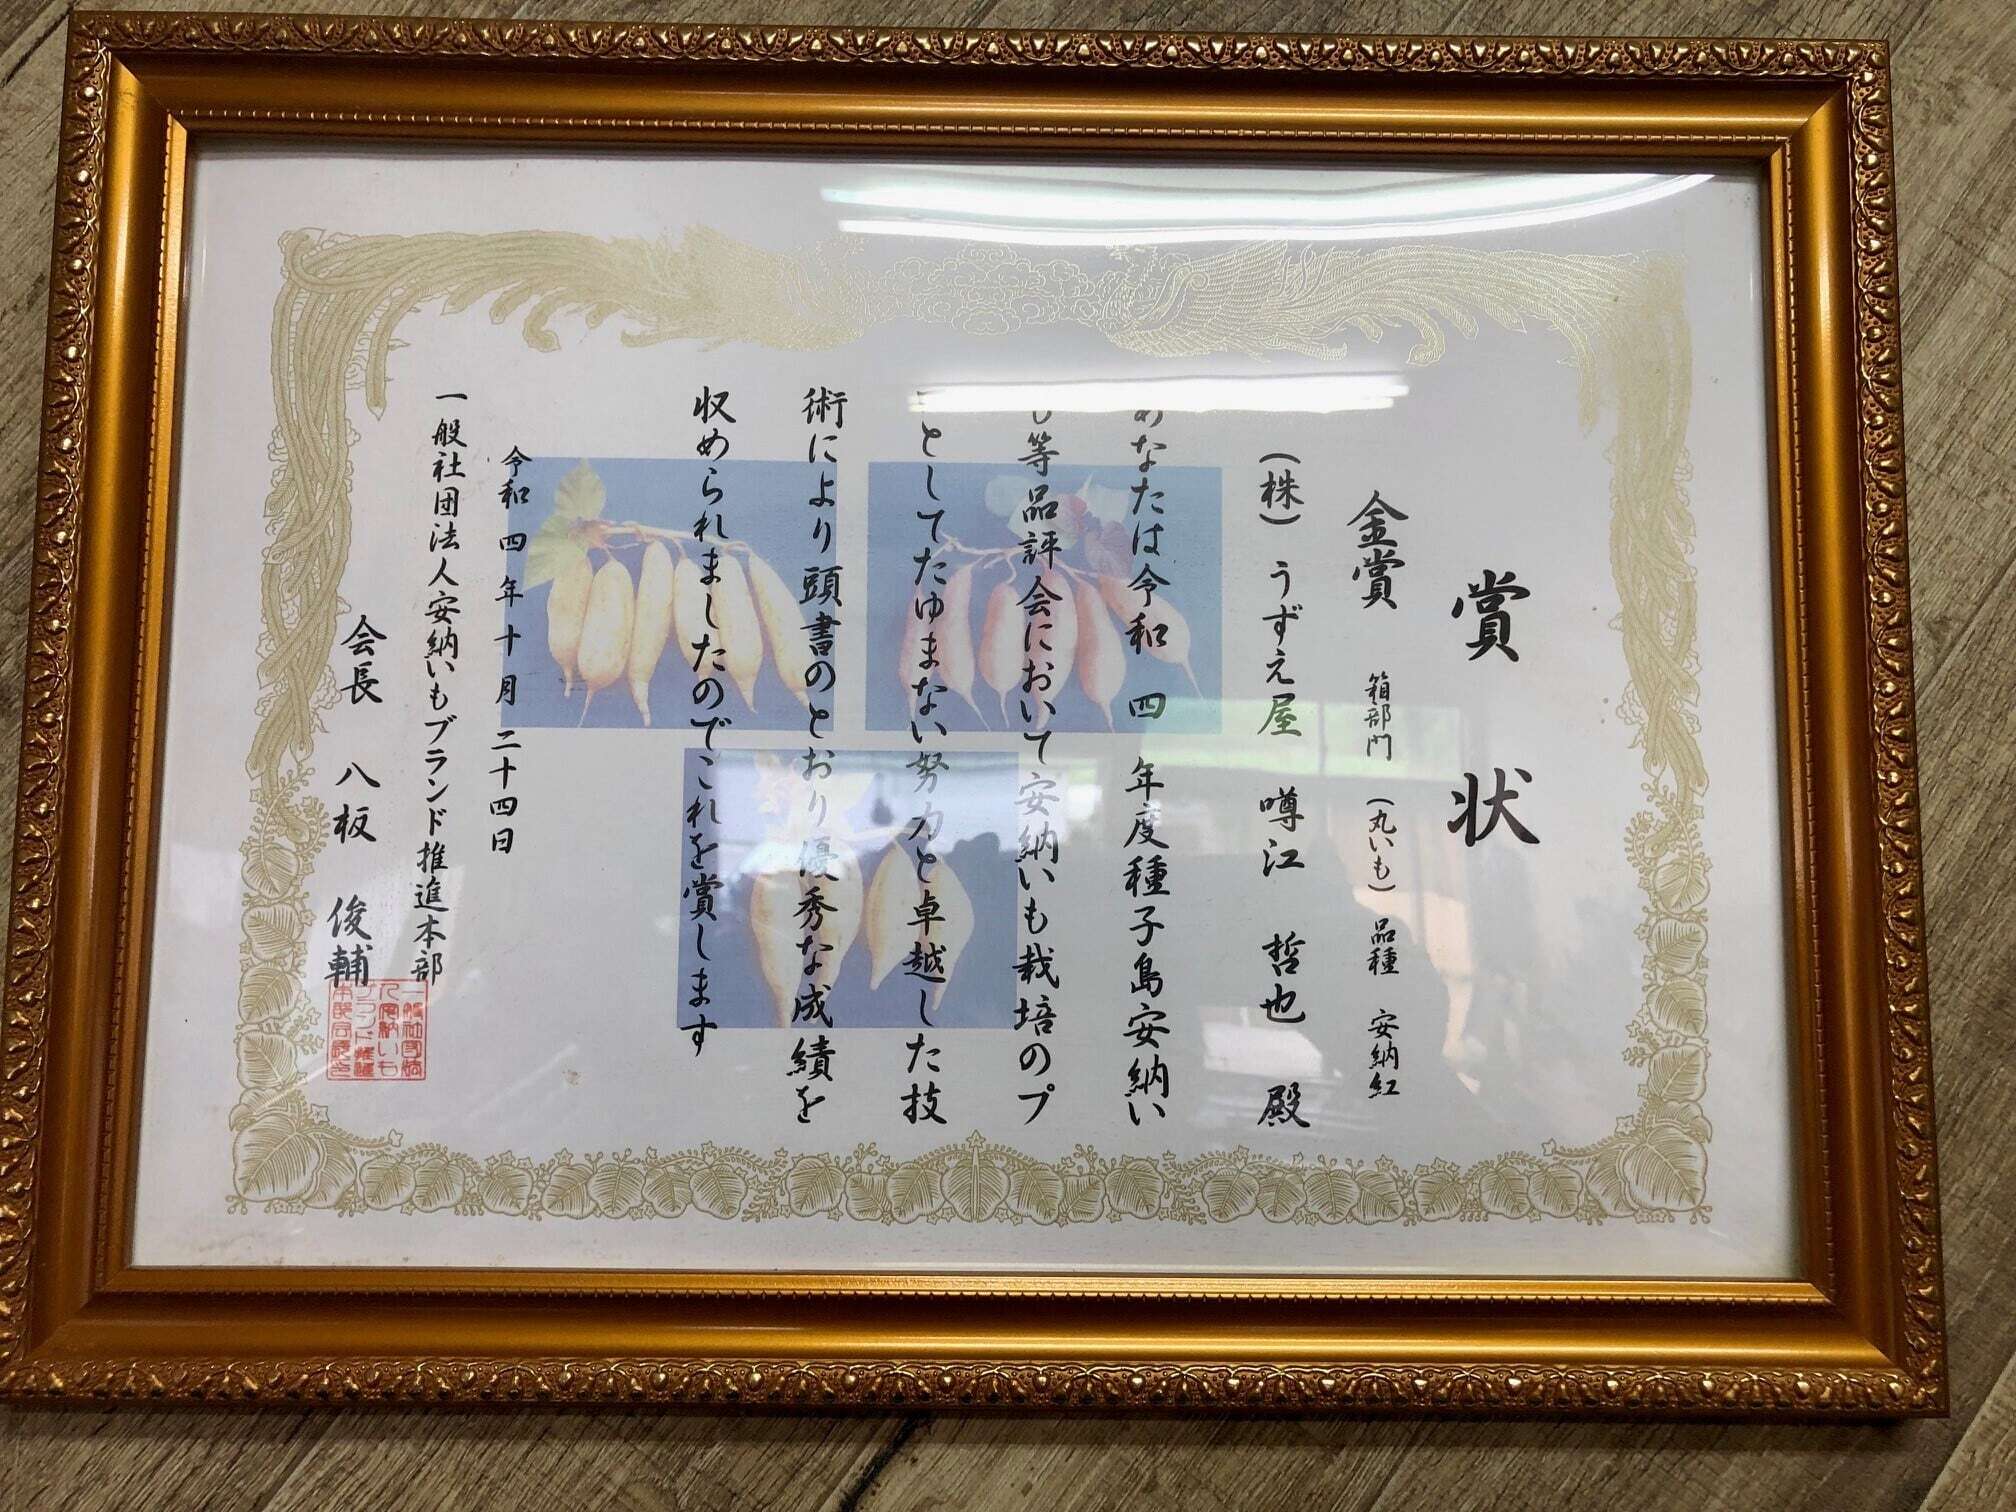 賞状
金賞 箱部門 (丸いも) 品種 安納紅
(株) うずえ屋 噂江 哲也 殿
あなたは令和 四 年度種子島安納い
も等品評会において安納いも栽培のプ
としてたゆまない努力と卓越した技
術により頭書のとおり優秀な成績を
収められましたのでこれを賞します
令和 四 年 十 月 二十四日
一般社団法人安納いもブランド推進本部
会長 八板 俊輔